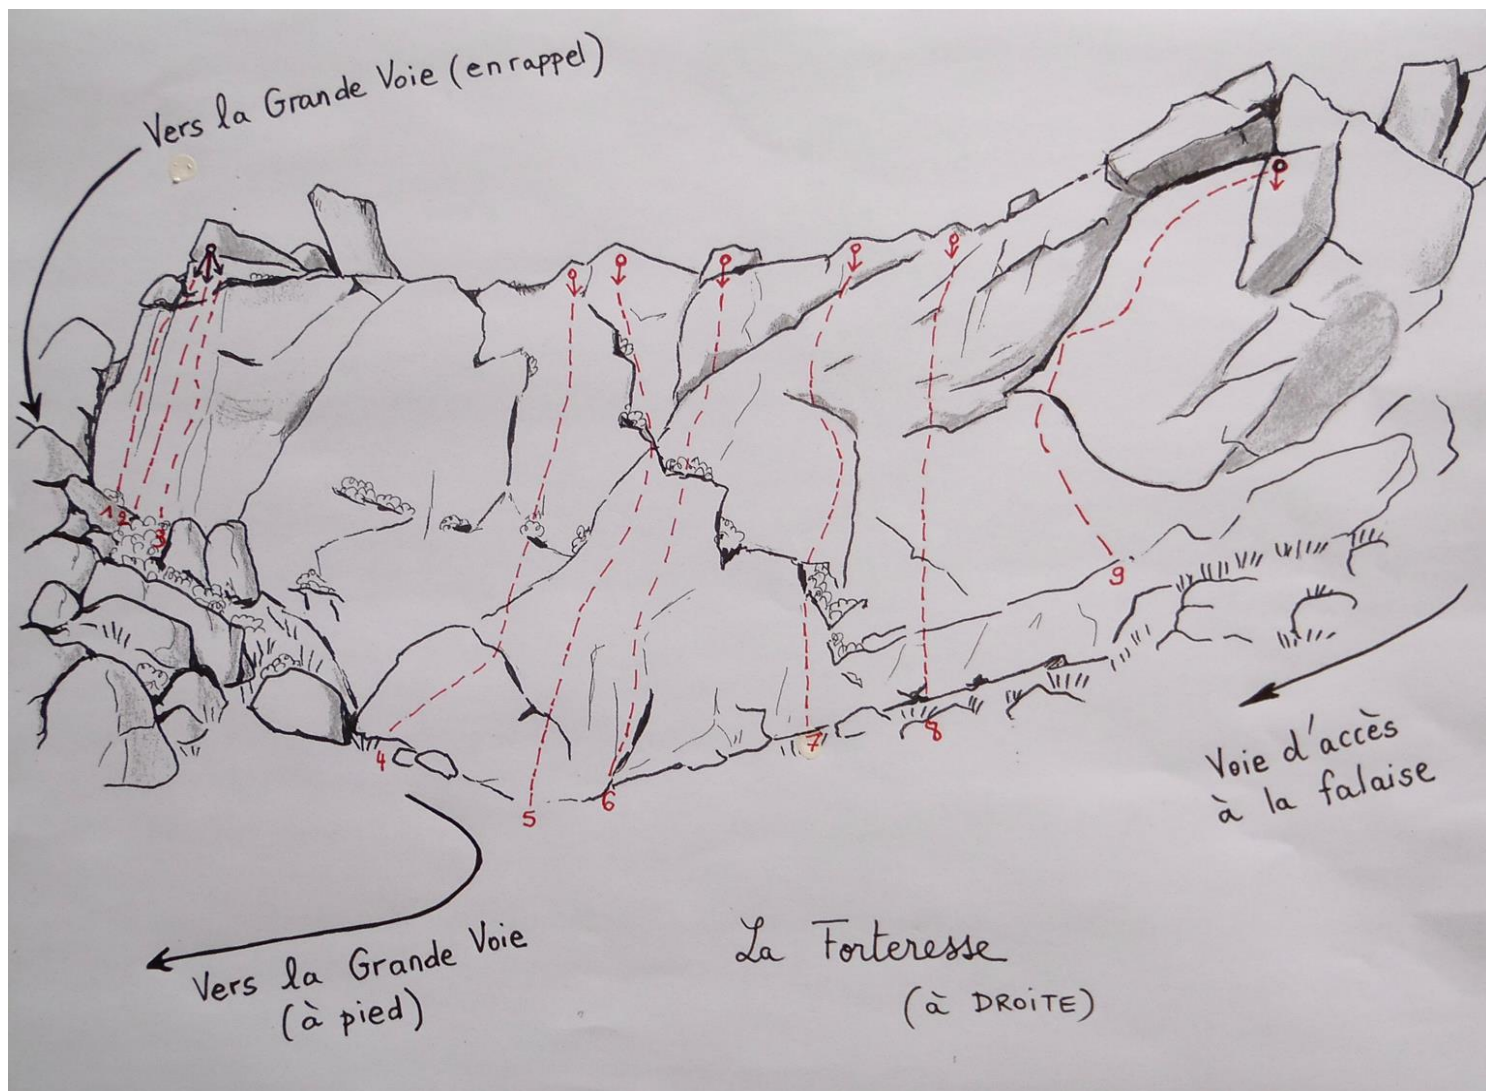 Vers la Grande Voie (en rappel)
1 2
3
4
5
6
7
8
9
Voie d'accès
à la falaise
Vers la Grande Voie
(à pied)
La Forteresse
(à DROITE)